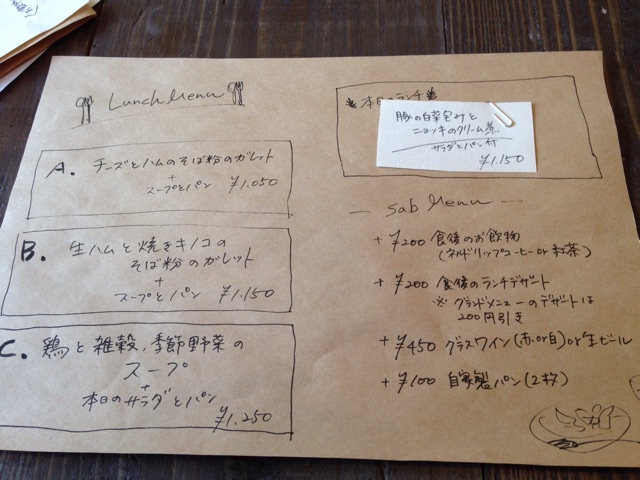 Lunch Menu
A. チーズとハムのそば粉のガレット
+
スープとパン ¥1.050
B. 生ハムと焼きキノコの
そば粉のガレット
+
スープとパン ¥1.150
C. 鶏と雑穀、季節野菜の
スープ
+
本日のサラダとパン
¥1.250
本日のランチ
豚の白菜包みと
ニョッキのクリーム煮
サラダとパン付
¥1.150
— Sab Menu —
+ ¥200 食後のお飲物
(ネルドリップコーヒーor紅茶)
+ ¥200 食後のランチデザート
※ グランドメニューのデザートは
200円引き
+ ¥450 グラスワイン(赤or白)or生ビール
+ ¥100 自家製パン(2枚)